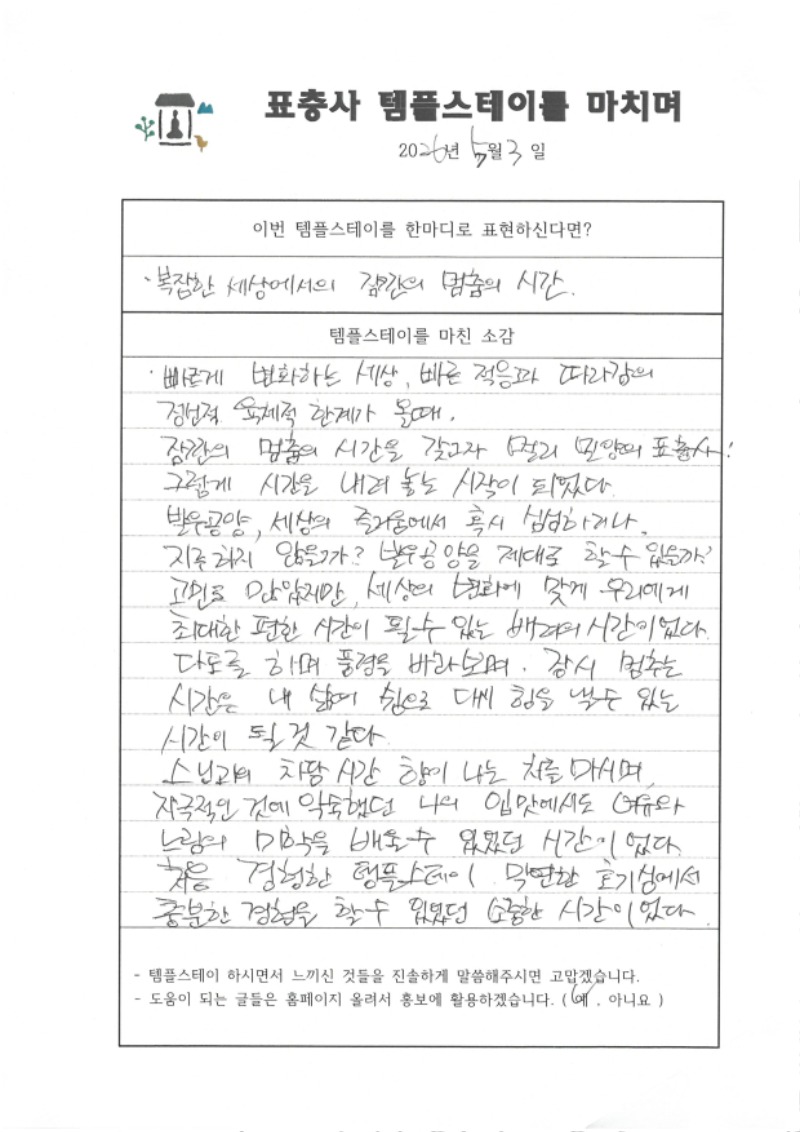 표충사 템플스테이를 마치며
2026년 5월 3일
이번 템플스테이를 한마디로 표현하신다면?
· 복잡한 세상에서의 잠깐의 멈춤의 시간.
템플스테이를 마친 소감
· 빠르게 변화하는 세상, 빠른 적응과 따라감의
정신적 육체적 한계가 올때.
잠깐의 멈춤의 시간을 갖고자 멀리 밀양의 표충사!
그렇게 시간을 내려 놓는 시작이 되었다.
발우공양, 세상의 즐거움에서 혹시 심심하거나,
지루하지 않을까? 발우공양을 제대로 할수 있을까?
고민도 많았지만, 세상의 변화에 맞게 우리에게
최대한 편한 시간이 될수 있는 배려의 시간이었다.
다도를 하며 풍경을 바라보며. 잠시 멈추는
시간은 내 삶의 쉼으로 다시 힘을 낼수 있는
시간이 될 것 같다.
스님과의 차담 시간 향이 나는 차를 마시며,
자극적인 것에 익숙했던 나의 입맛에서도 여유와
느림의 미학을 배울수 있었던 시간이었다.
처음 경험한 템플스테이 막연한 호기심에서
충분한 경험을 할수 있었던 소중한 시간이었다.
- 템플스테이 하시면서 느끼신 것들을 진솔하게 말씀해주시면 고맙겠습니다.
- 도움이 되는 글들은 홈페이지 올려서 홍보에 활용하겠습니다. ( 예 . 아니요 )